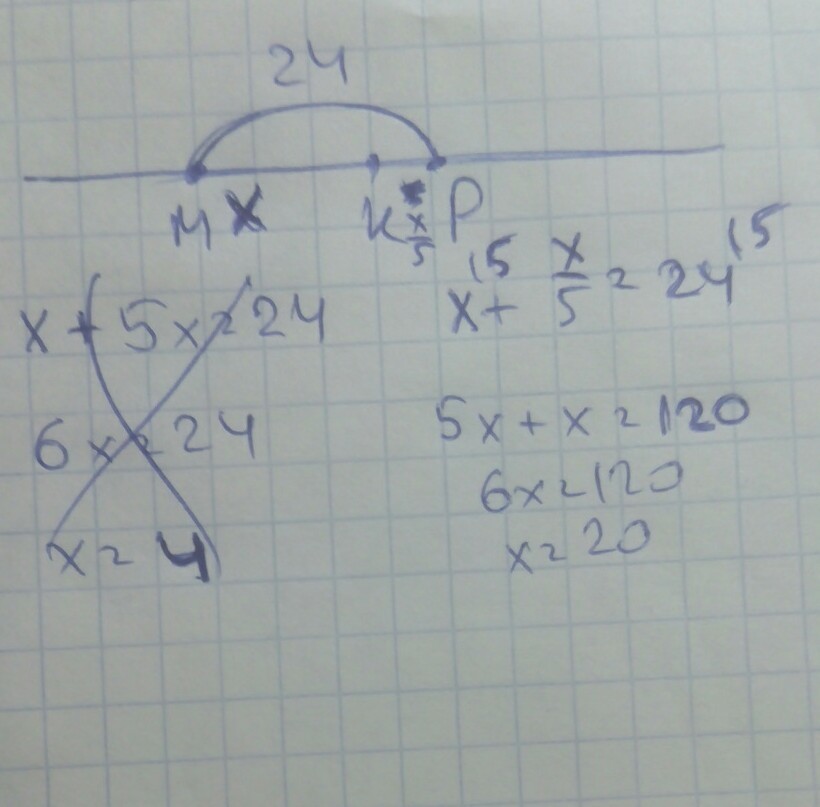 24
M x K x/5 P
x + 5x = 24
6x = 24
x = 4
x|5 + x/5 = 24|5
5x + x = 120
6x = 120
x = 20